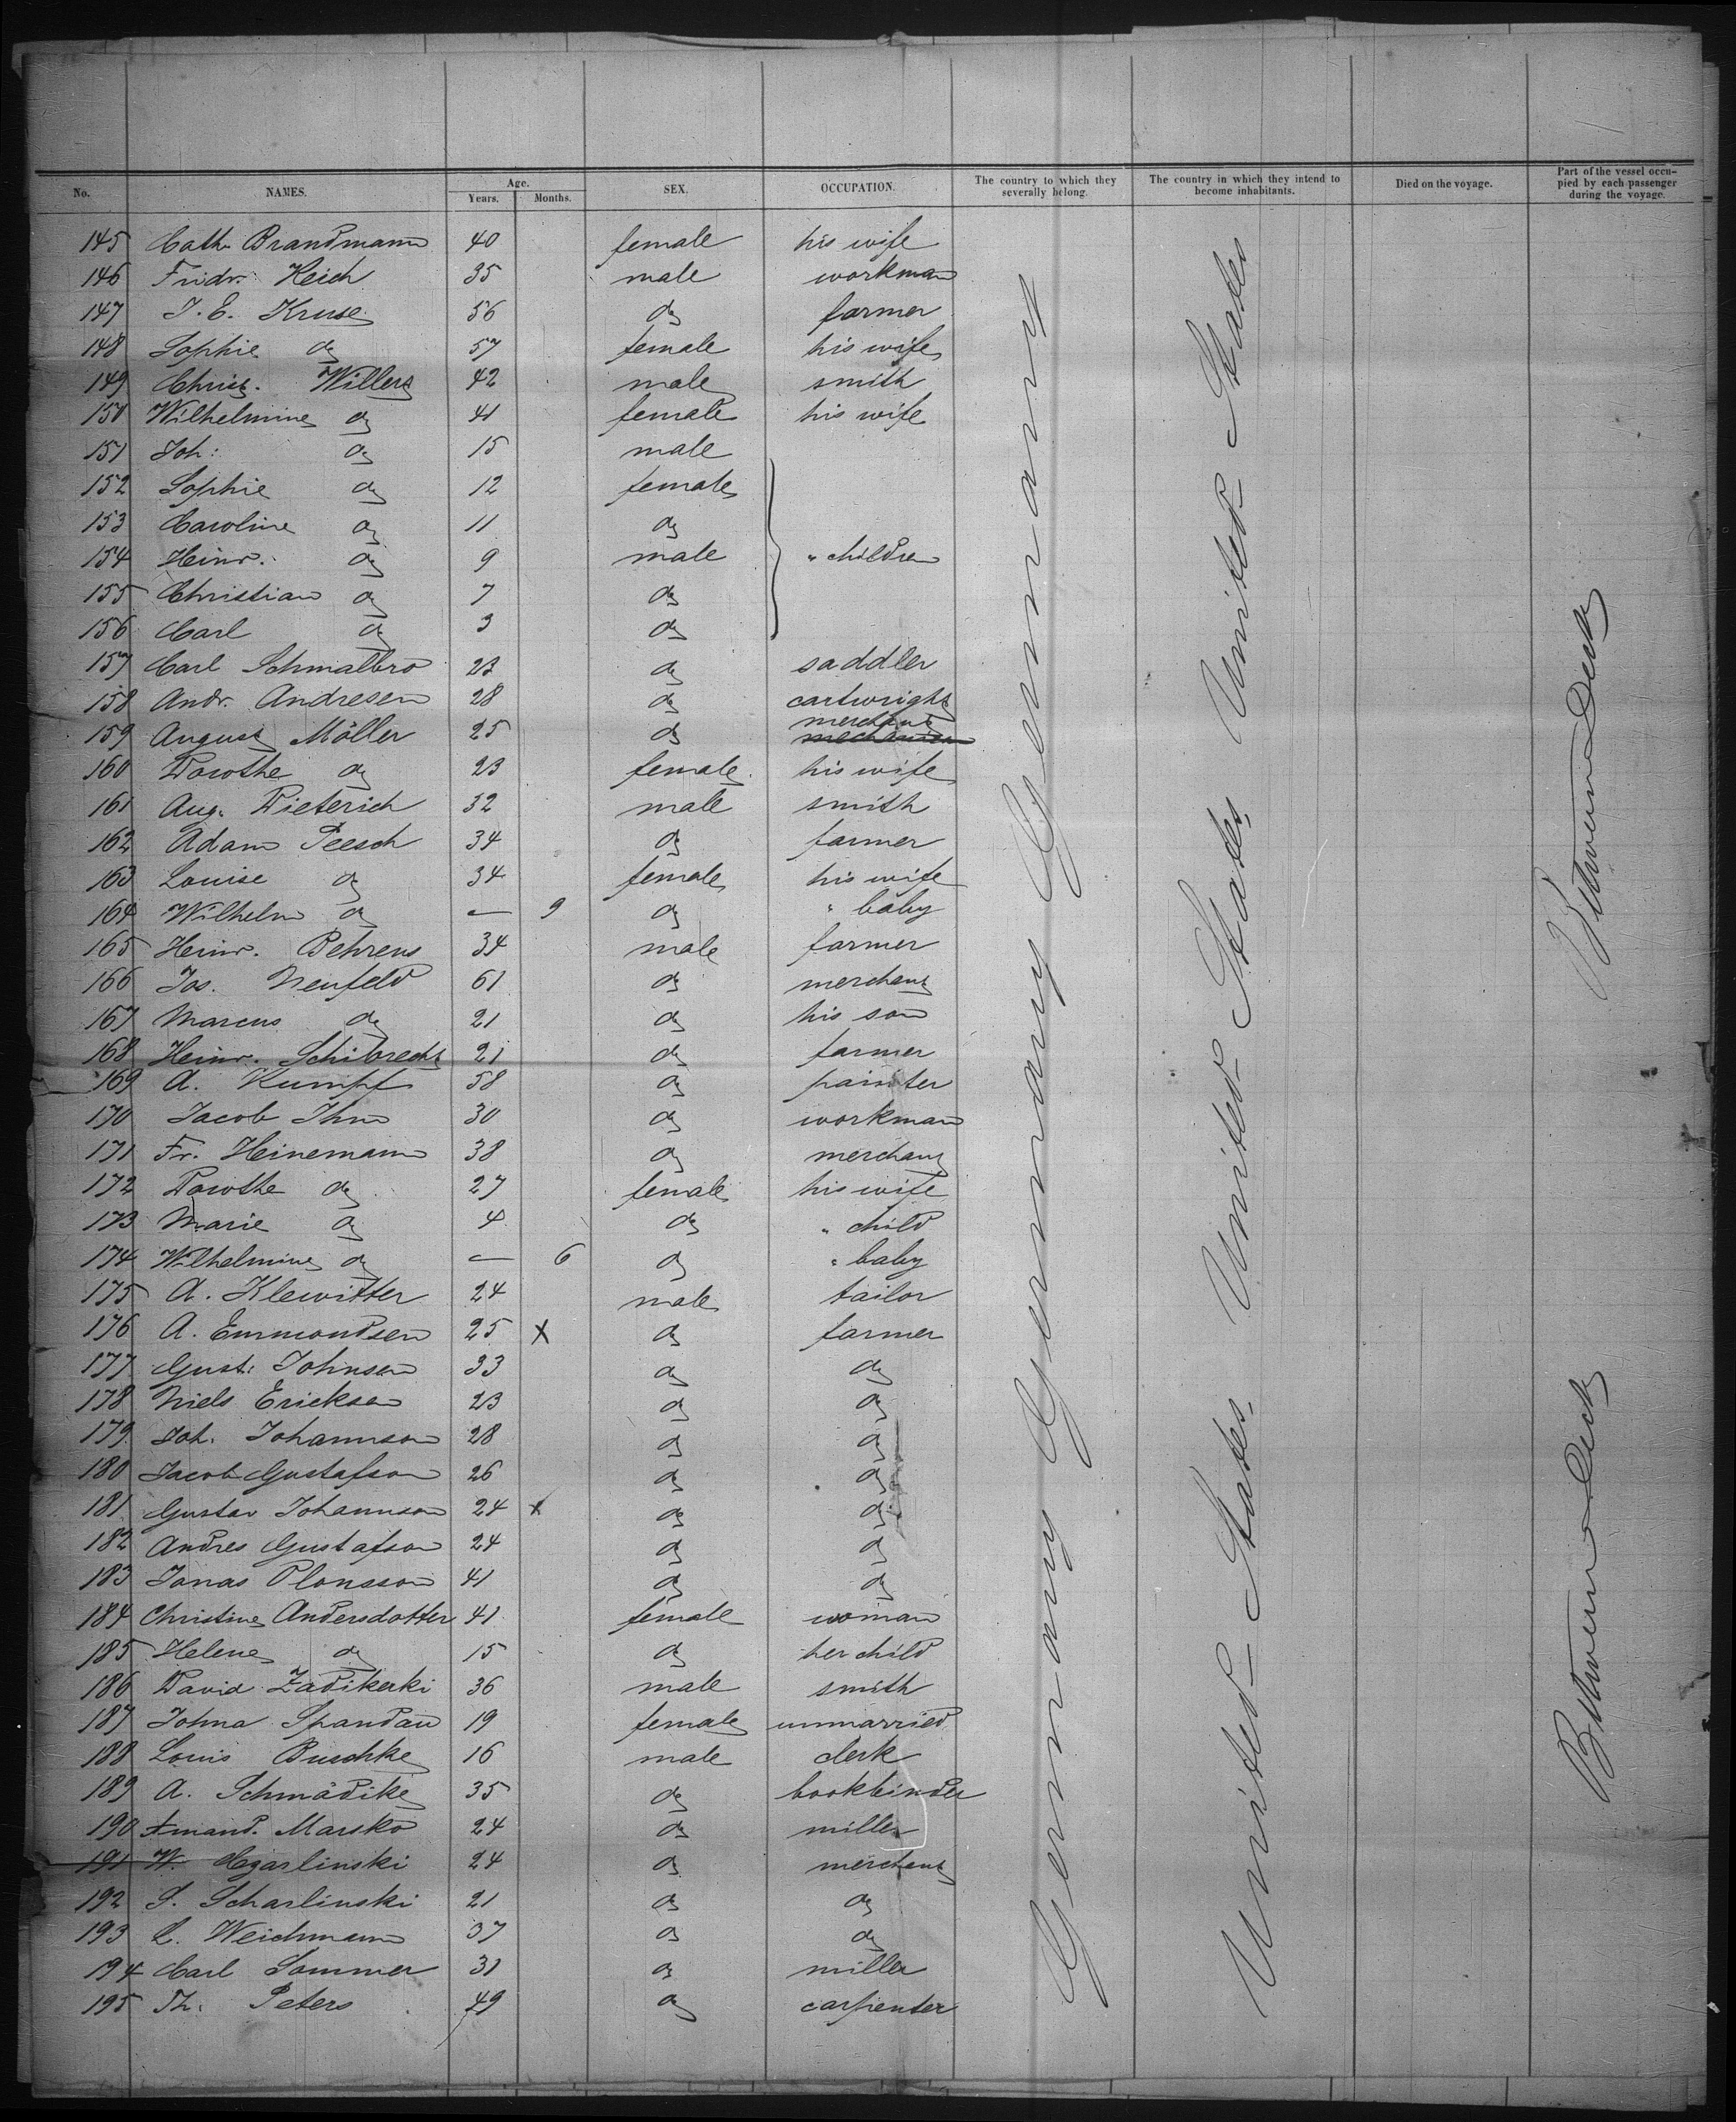 No. NAMES. Age. Years. Months. SEX. OCCUPATION. The country to which they severally belong. The country in which they intend to become inhabitants. Died on the voyage. Part of the vessel occupied by each passenger during the voyage.
145 Cath. Brandmann 40 female his wife
146 Fridr. Keich 35 male workman
147 J. E. Kruse 56 do farmer
148 Sophie do 57 female his wife
149 Christ. Willers 42 male smith
150 Wilhelmine do 41 female his wife
151 Joh: do 15 male
152 Sophie do 12 female
153 Caroline do 11 do
154 Heinr. do 9 male " children
155 Christian do 7 do
156 Carl do 3 do
157 Carl Schmalbro 23 do saddler
158 Andr. Andresen 28 do cartwright
159 August Möller 25 do merchant
160 Dorothe do 23 female his wife
161 Aug. Dieterich 32 male smith
162 Adam Peesch 34 do farmer
163 Louise do 34 female his wife
164 Wilhelm do — 9 do " baby
165 Heinr. Behrens 34 male farmer
166 Jos. Neufeld 61 do merchant
167 Marcus do 21 do his son
168 Heinr. Schibrecht 21 do farmer
169 A. Kumpf 58 do painter
170 Jacob Ihm 30 do workman
171 Fr. Heinemann 38 do merchant
172 Dorothe do 27 female his wife
173 Marie do 4 do " child
174 Wilhelmine do — 6 do " baby
175 A. Klewitter 24 male tailor
176 A. Emmondsen 25 x do farmer
177 Gust: Johnsen 33 do do
178 Niels Erickson 23 do do
179 Joh. Johannson 28 do do
180 Jacob Gustafson 26 do do
181 Gustav Johannson 24 x do do
182 Andres Gustafson 24 do do
183 Jonas Olonsson 41 do do
184 Christine Andersdotter 41 female woman
185 Helene do 15 do her child
186 David Zadikerki 36 male smith
187 Johna Spandau 19 female unmarried
188 Louis Buschke 16 male clerk
189 A. Schmädike 35 do bookbinder
190 Amand. Marsko 24 do miller
191 W. Hgarlinski 24 do merchant
192 S. Scharlinski 21 do do
193 L. Weichmann 37 do do
194 Carl Sommer 31 do miller
195 Th. Peters 49 do carpenter
Germany Germany Germany
United States United States United States
Between Deck Between Deck